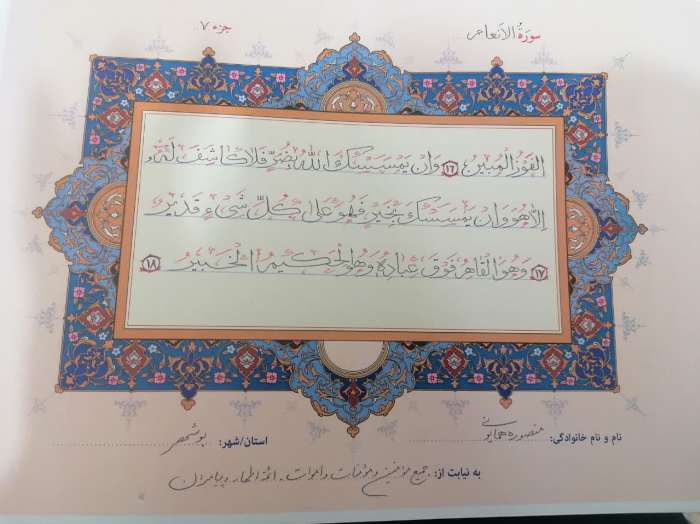 سورة الانعام
جزء ۷
الفَوْزُ المُبينُ ۱۶ وَاِنْ يَمْسَسْكَ اللّٰهُ بِضُرٍّ فَلا كاشِفَ لَهُ
اِلّا هُوَ وَاِنْ يَمْسَسْكَ بِخَيْرٍ فَهُوَ عَلى كُلِّ شَيْءٍ قَديرٌ
۱۷ وَهُوَ القاهِرُ فَوْقَ عِبادِهِ وَهُوَ الحَكيمُ الخَبيرُ ۱۸
نام و نام خانوادگی: منصوره همایونی استان/شهر: بوشهر
به نیابت از: جمیع مؤمنین و مؤمنات و اموات، ائمه اطهار و پیامبران